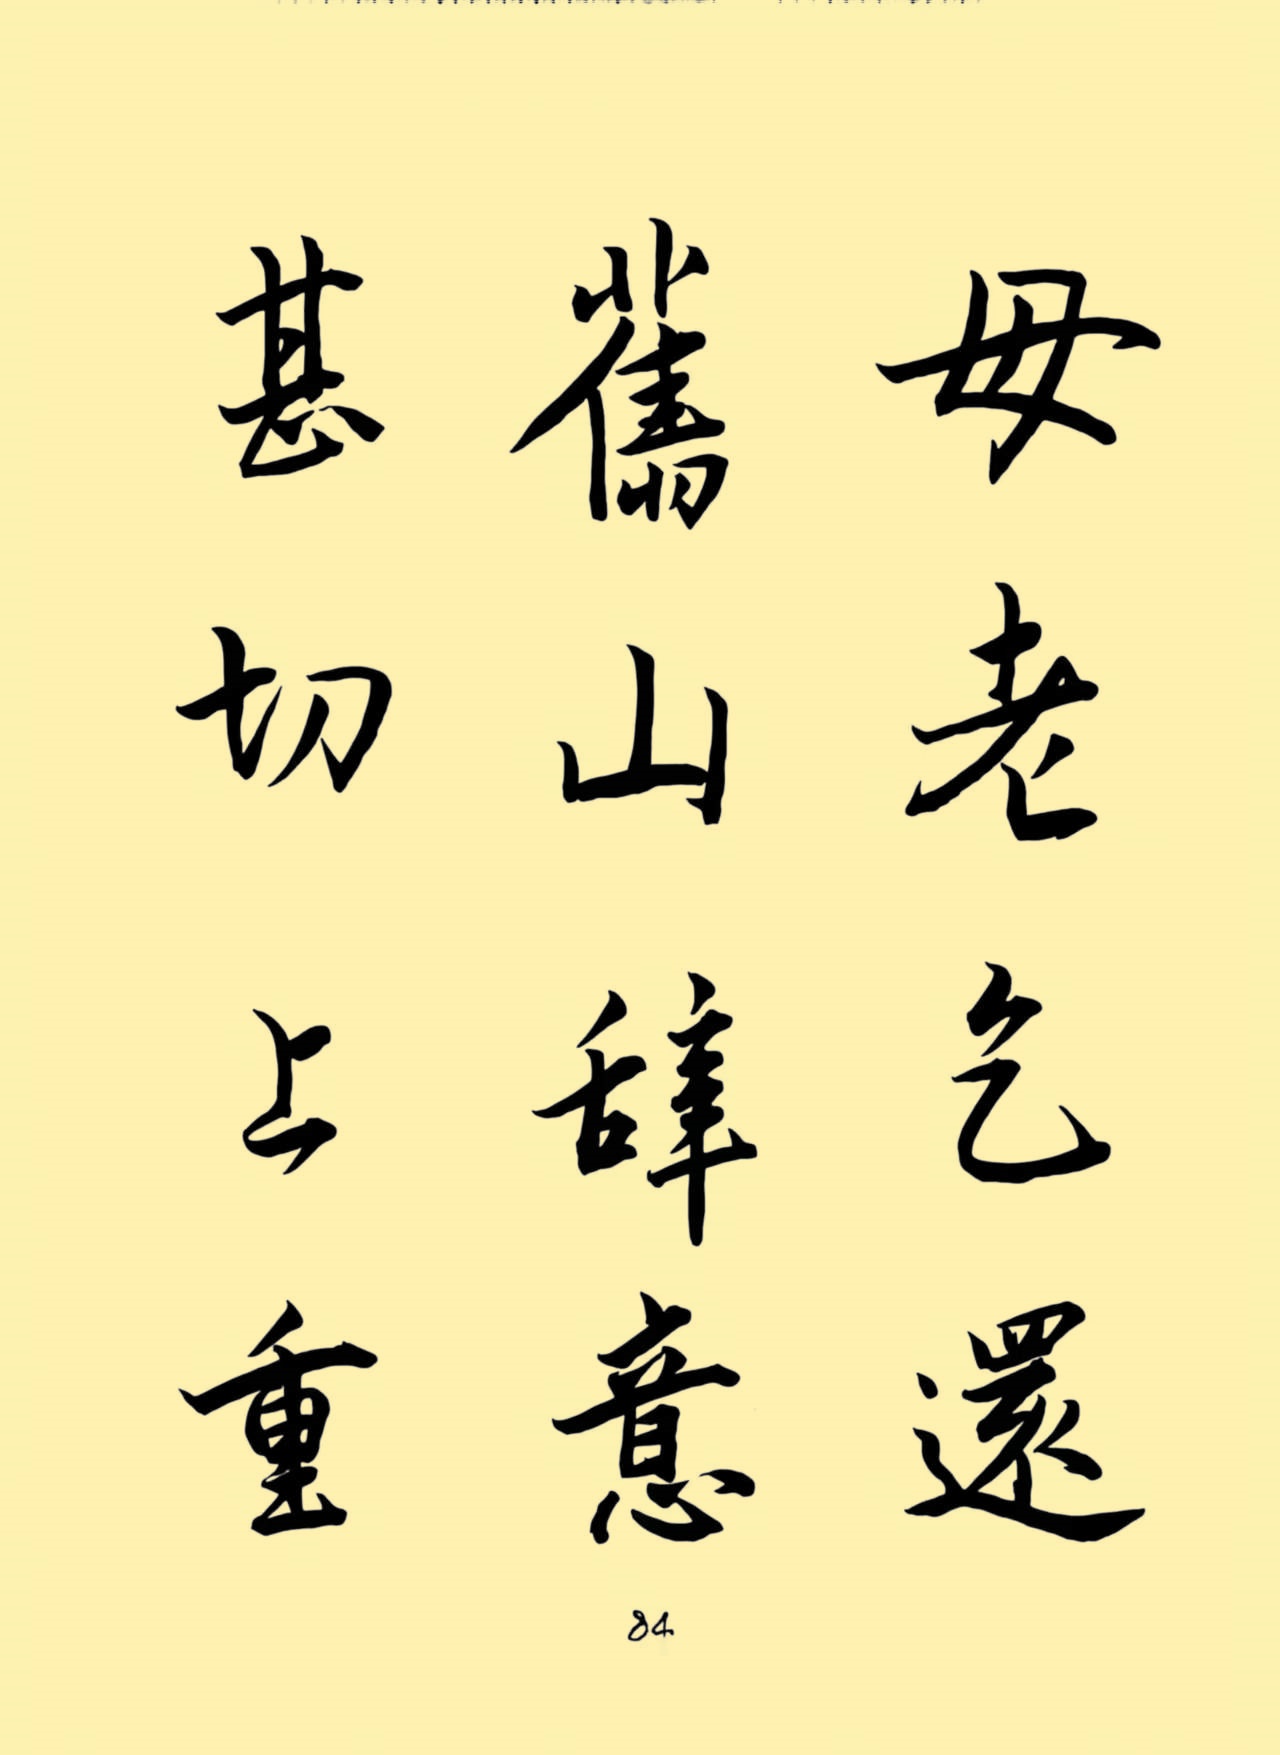 母老乞還
舊山辞意
甚切上重
84